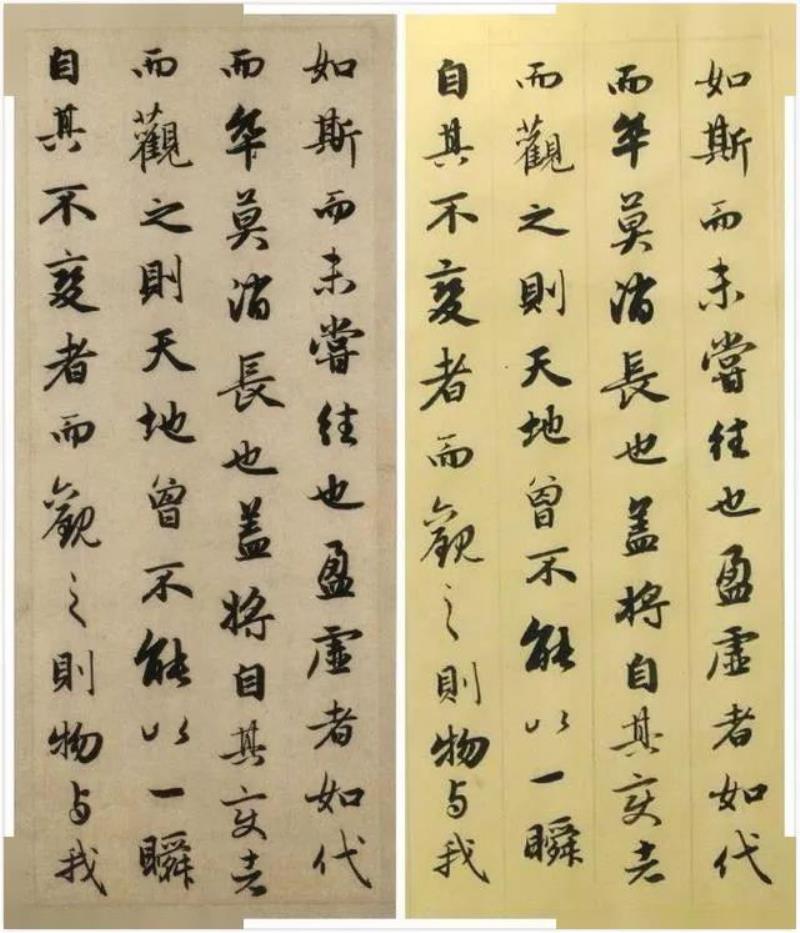 如斯而未嘗往也盈虛者如代
而卒莫消長也盖將自其变者
而觀之則天地曾不能以一瞬
自其不變者而觀之則物与我
如斯而未嘗往也盈虛者如代
而卒莫消長也盖將自其变者
而觀之則天地曾不能以一瞬
自其不變者而觀之則物与我